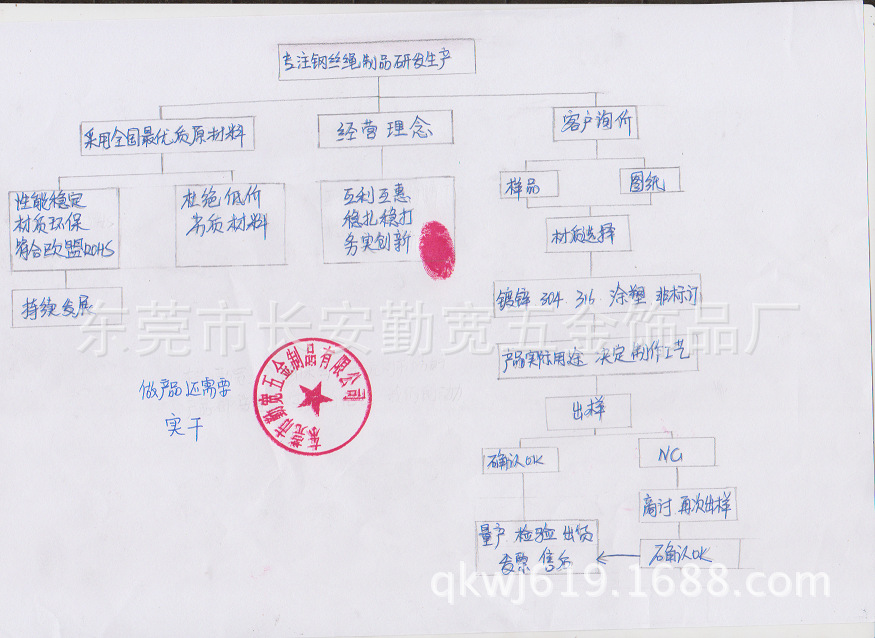 专注钢丝绳制品研发生产
采用全国最优质原材料
经营理念
客户询价
样品
图纸
性能稳定
材质环保
符合欧盟ROHS
杜绝低价
劣质材料
互利互惠
稳扎稳打
务实创新
材质选择
持续发展
镀锌 304 316 涂塑 非标订
东莞市长安勤宽五金饰品厂
产品实际用途 决定制作工艺
做产品还需要
实干
东莞市勤宽五金制品有限公司
出样
确认OK
NG
商讨 再次出样
量产 检验 出货
售后
确认OK
qkwj619.1688.com